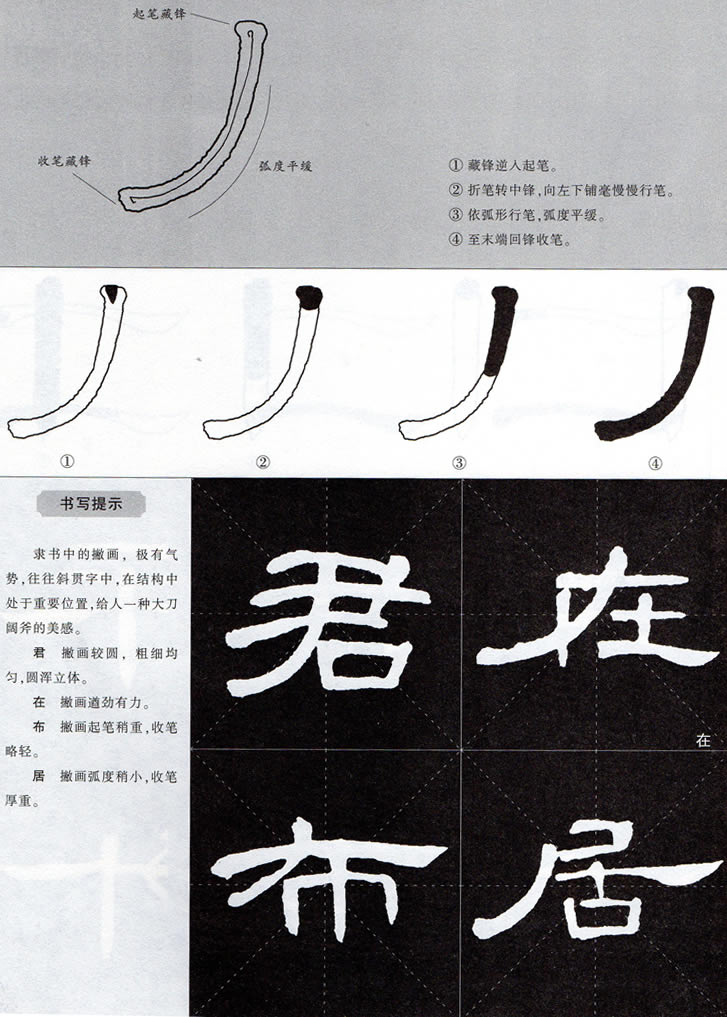 起笔藏锋
收笔藏锋
弧度平缓
① 藏锋逆入起笔。
② 折笔转中锋,向左下铺毫慢慢行笔。
③ 依弧形行笔,弧度平缓。
④ 至末端回锋收笔。
① ② ③ ④
书写提示
隶书中的撇画，极有气
势,往往斜贯字中,在结构中
处于重要位置,给人一种大刀
阔斧的美感。
君 撇画较圆，粗细均
匀,圆浑立体。
在 撇画遒劲有力。
布 撇画起笔稍重,收笔
略轻。
居 撇画弧度稍小,收笔
厚重。
君 在
在
布 居